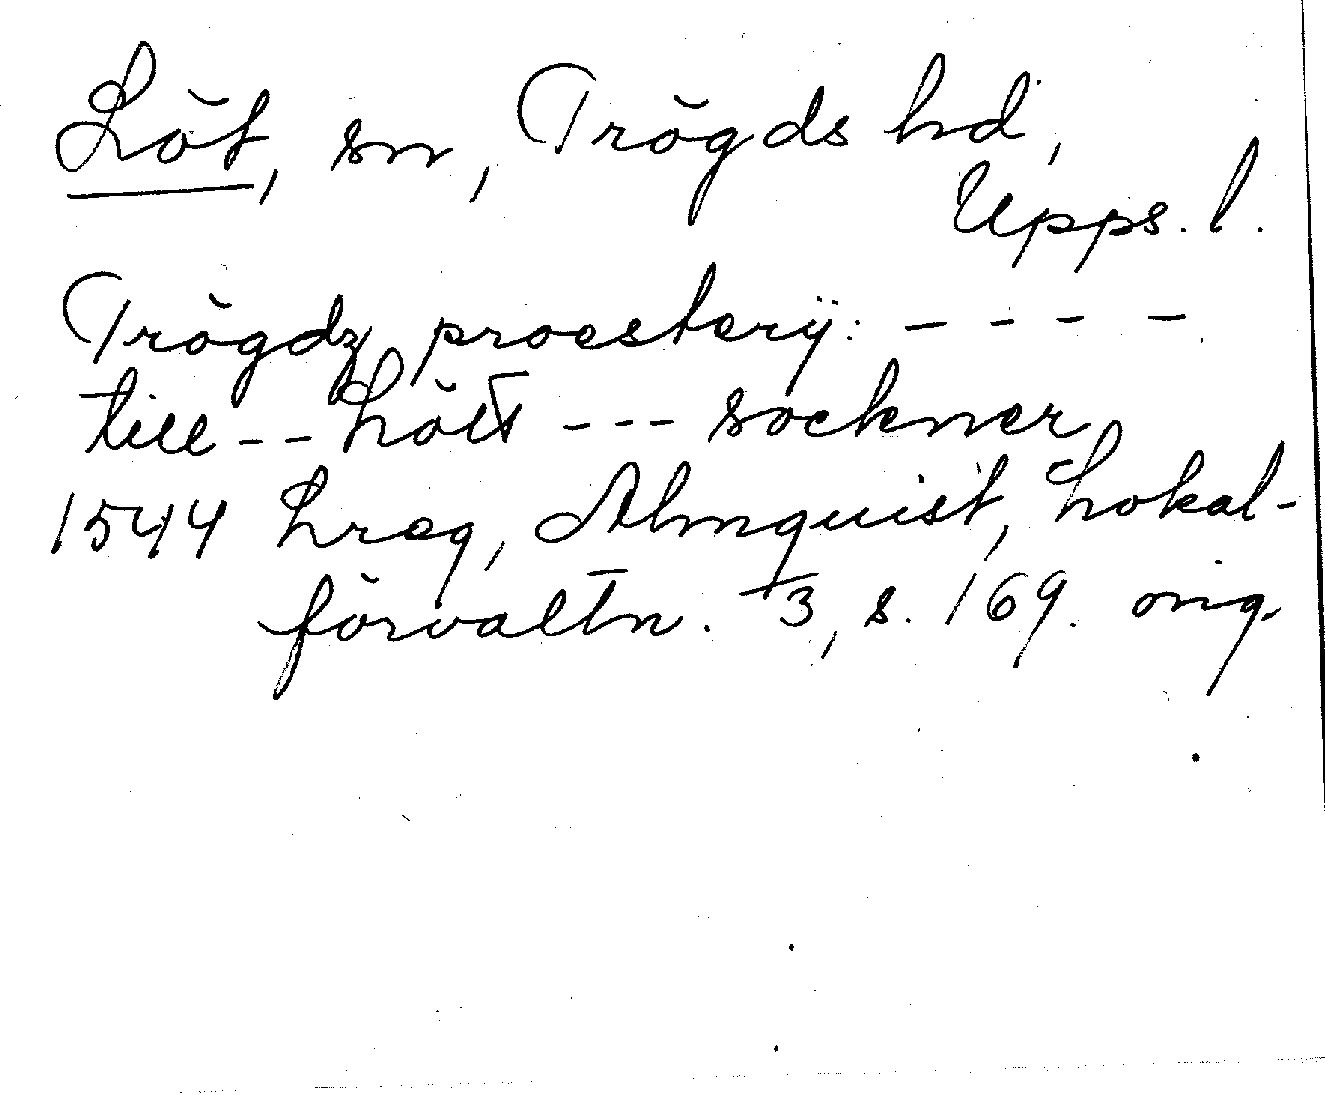 Löt, sn, Trögds hd,
Upps. l.
Trögdz proesterÿ: - - - -
till - - Lött - - - sockner
1544 Lreg, Almquist, Lokal-
förvaltn. 3, s. 169. orig.